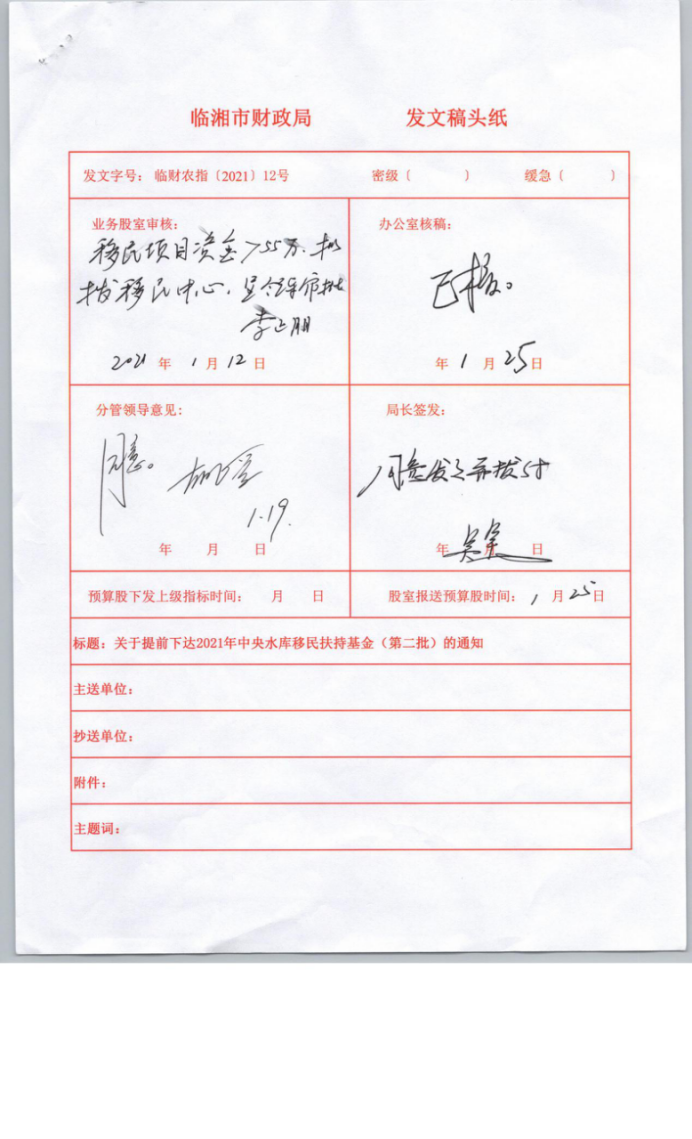 临湘市财政局 发文稿头纸
发文字号：临财农指〔2021〕12号 密级〔 〕 缓急〔 〕
业务股室审核：
移民项目资金755万、拟
拨移民中心，呈领导审批
2021 年 1 月 12 日
办公室核稿：
已核。
年 1 月 25 日
分管领导意见：
同意。
1.19.
年 月 日
局长签发：
同意发文并拨付
年 月 日
预算股下发上级指标时间： 月 日 股室报送预算股时间：1 月 25 日
标题：关于提前下达2021年中央水库移民扶持基金（第二批）的通知
主送单位：
抄送单位：
附件：
主题词：